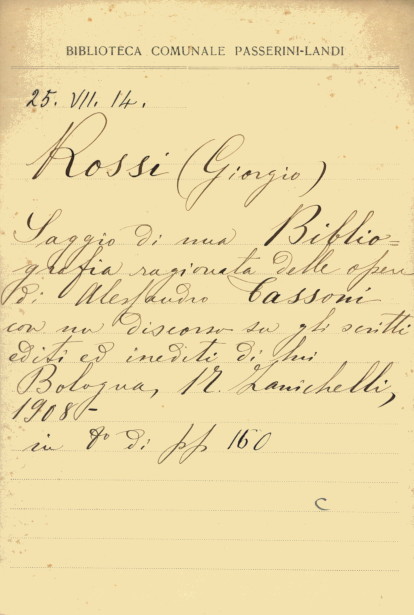 BIBLIOTECA COMUNALE PASSERINI-LANDI
25. VII. 14.
Rossi (Giorgio)
Saggio di una Biblio=
grafia ragionata delle opere
di Alessandro Tassoni
con un discorso su gli scritti
editi ed inediti di lui
Bologna, N. Zanichelli,
1908-
in 8º di pp 160
C